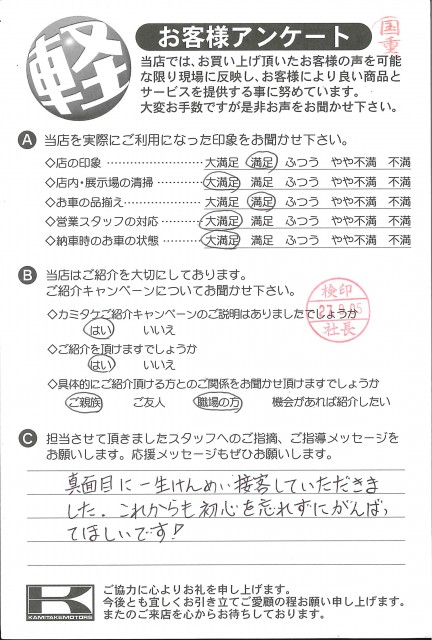 軽
お客様アンケート
国重
当店では、お買い上げ頂いたお客様の声を可能
な限り現場に反映し、お客様により良い商品と
サービスを提供する事に努めています。
大変お手数ですが是非お声をお聞かせ下さい。
A 当店を実際にご利用になった印象をお聞かせ下さい。
◇店の印象 大満足 満足 ふつう やや不満 不満
◇店内・展示場の清掃 大満足 満足 ふつう やや不満 不満
◇お車の品揃え 大満足 満足 ふつう やや不満 不満
◇営業スタッフの対応 大満足 満足 ふつう やや不満 不満
◇納車時のお車の状態 大満足 満足 ふつう やや不満 不満
B 当店はご紹介を大切にしております。
ご紹介キャンペーンについてお聞かせ下さい。
検印
社長
◇カミタケご紹介キャンペーンのご説明はありましたでしょうか
はい いいえ
◇ご紹介を頂けますでしょうか
はい いいえ
◇具体的にご紹介頂ける方とのご関係をお聞かせ頂けますでしょうか
ご親族 ご友人 職場の方 機会があれば紹介したい
C 担当させて頂きましたスタッフへのご指摘、ご指導メッセージを
お願いします。応援メッセージもぜひお願いします。
真面目に一生けんめい接客していただきま
した。これからも初心を忘れずにがんばっ
てほしいです!
K
KAMITAKEMOTORS
ご協力に心よりお礼を申し上げます。
今後とも宜しくお引き立てご愛顧の程お願い申し上げます。
またのご来店を心からお待ちしております。